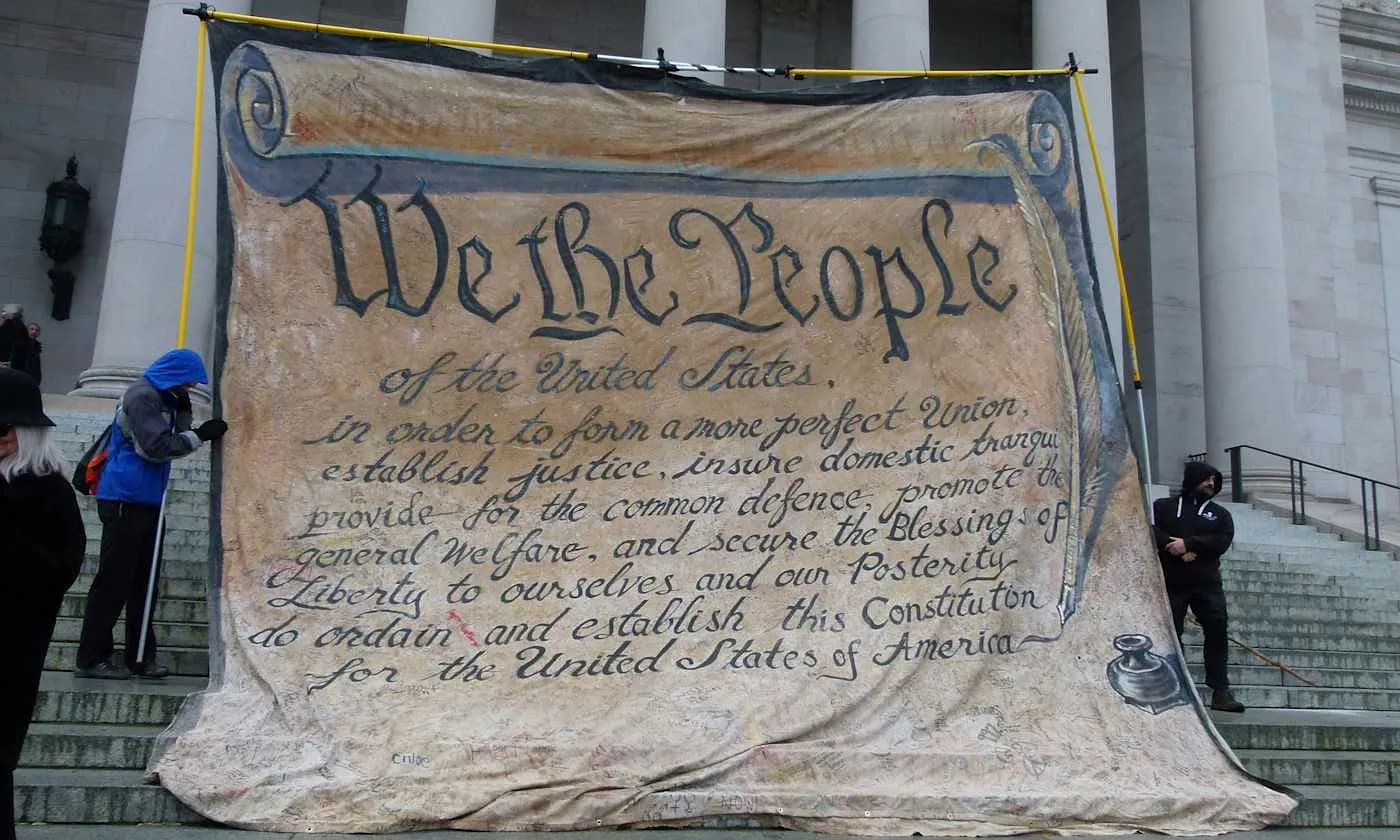 We the People
of the United States.
in order to form a more perfect Union,
establish justice, insure domestic tranqui
provide for the common defence, promote the
general Welfare, and secure the Blessings of
Liberty to ourselves and our Posterity
do ordain and establish this Constitution
for the United States of America
Chloe